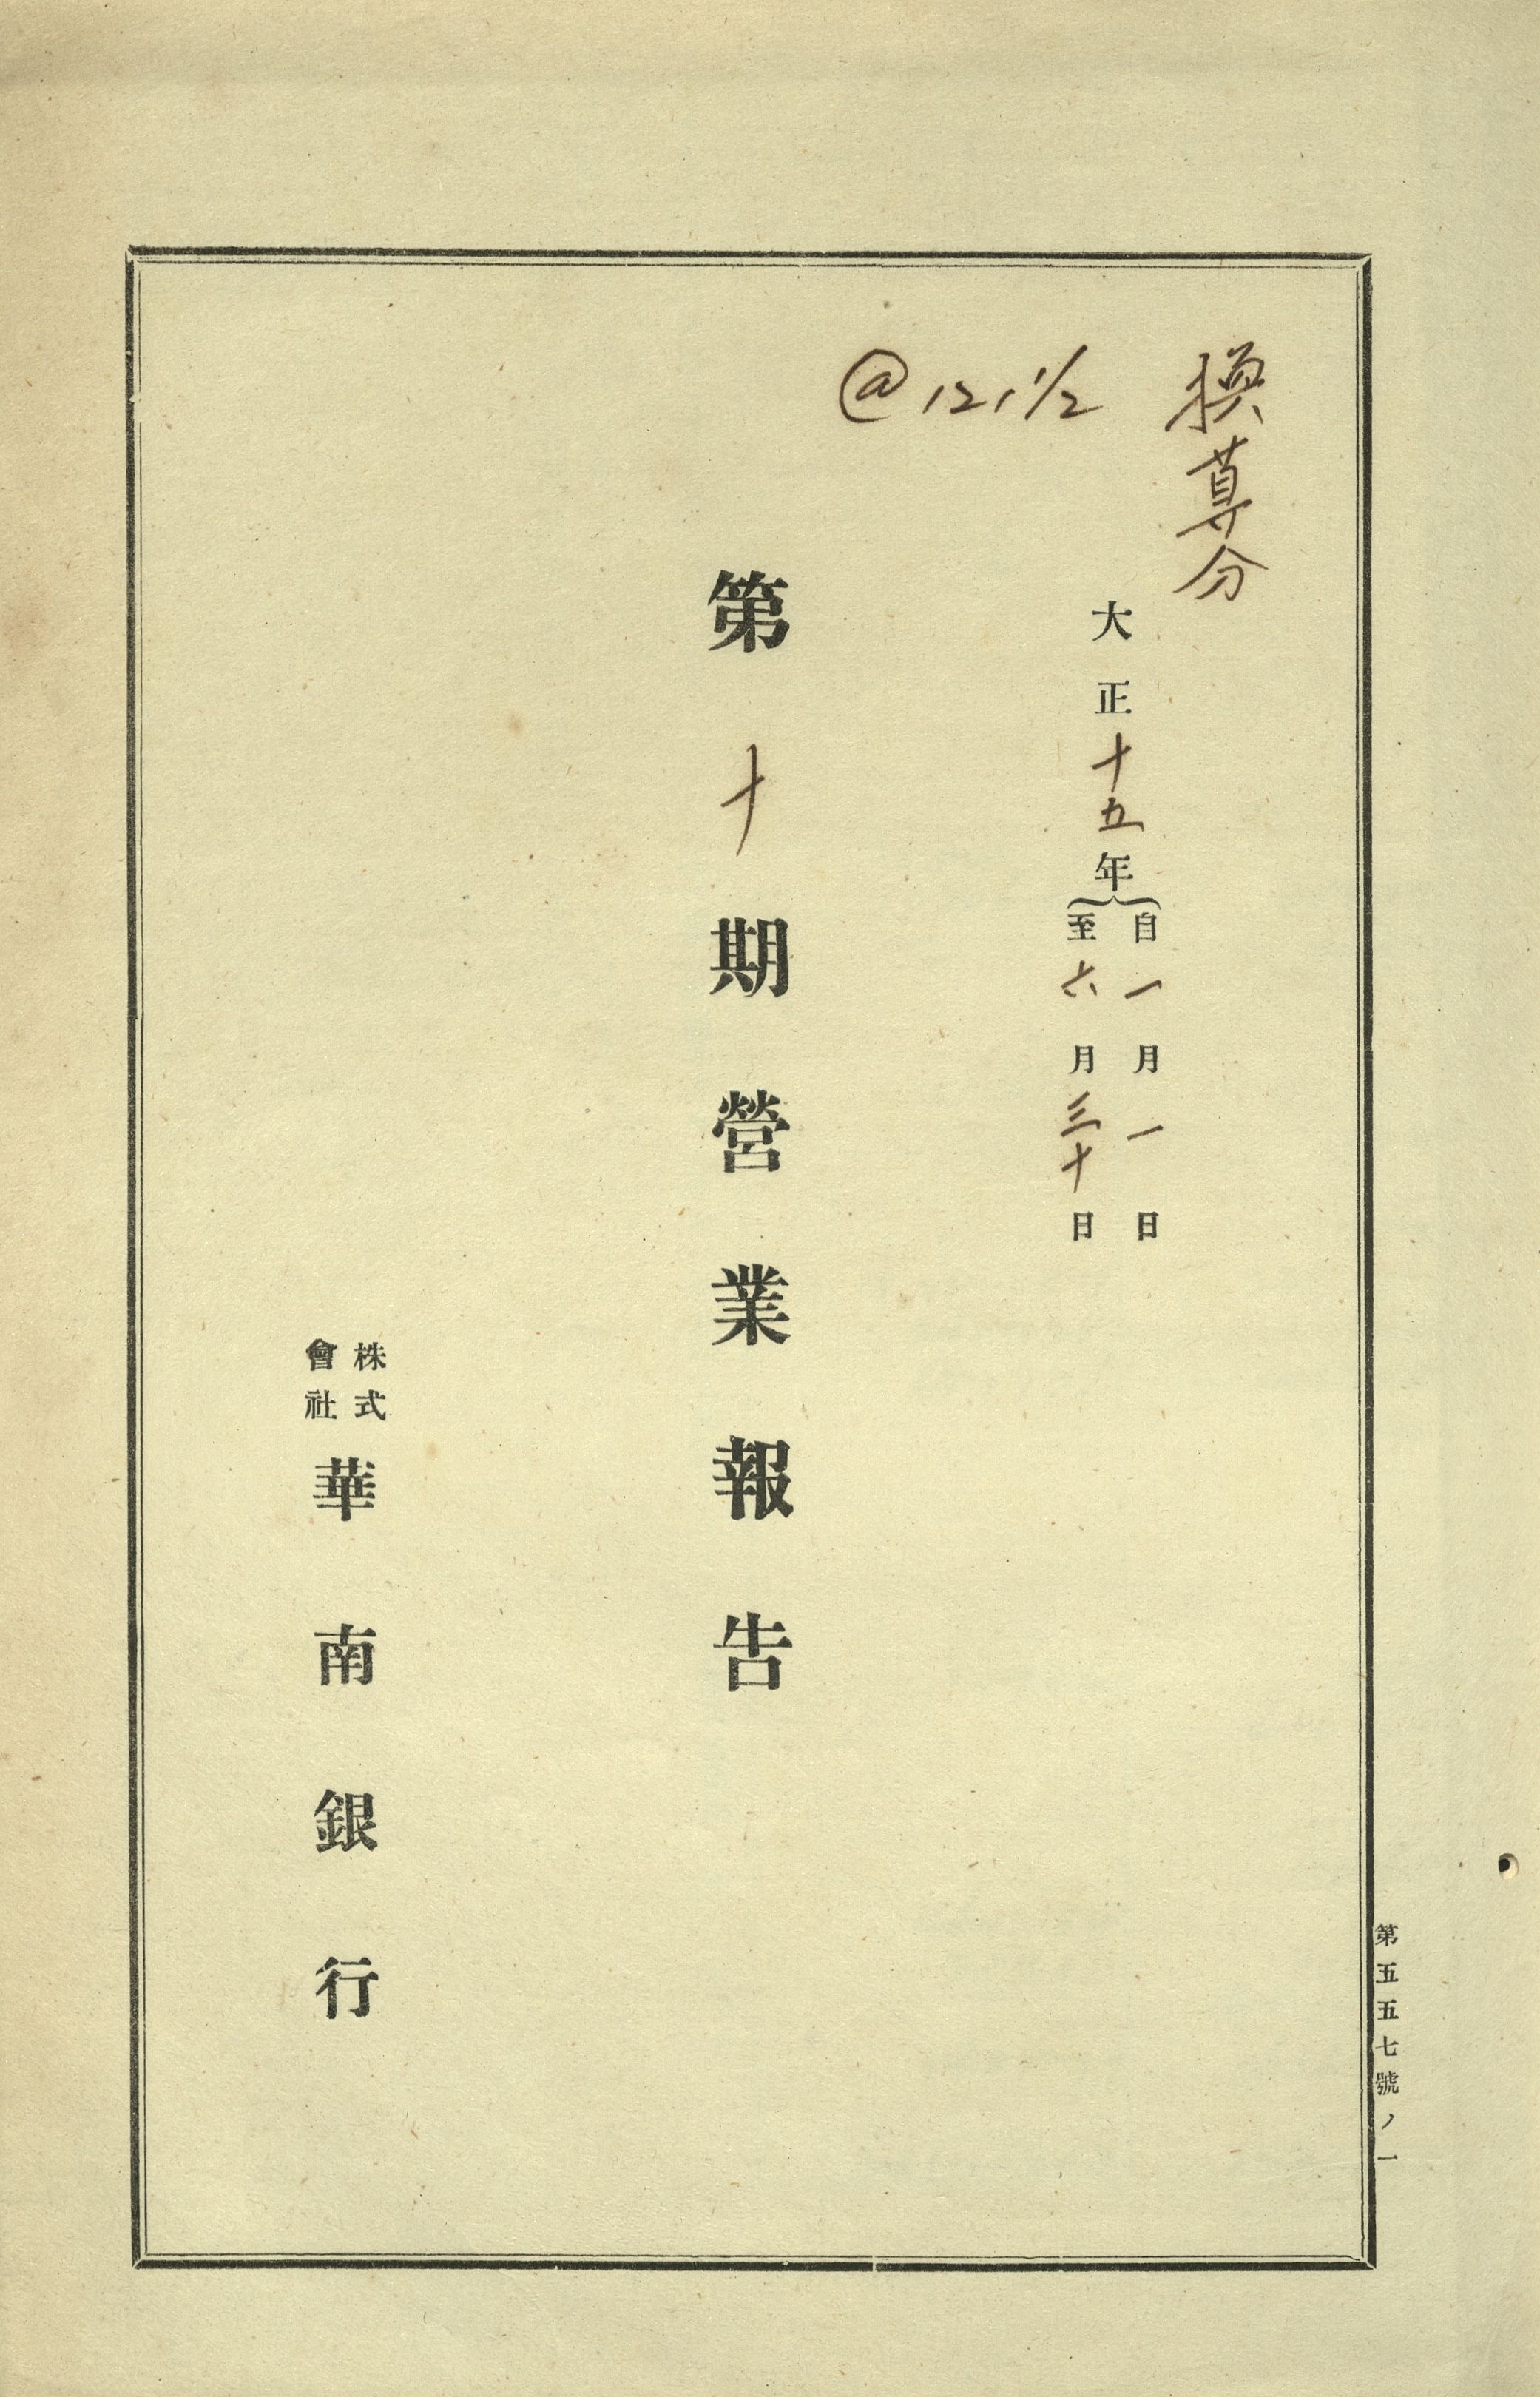 換算分
@121 1/2
大正十五年
自一月一日
至六月三十日
第十期營業報告
株式
會社
華南銀行
第五五七號ノ一